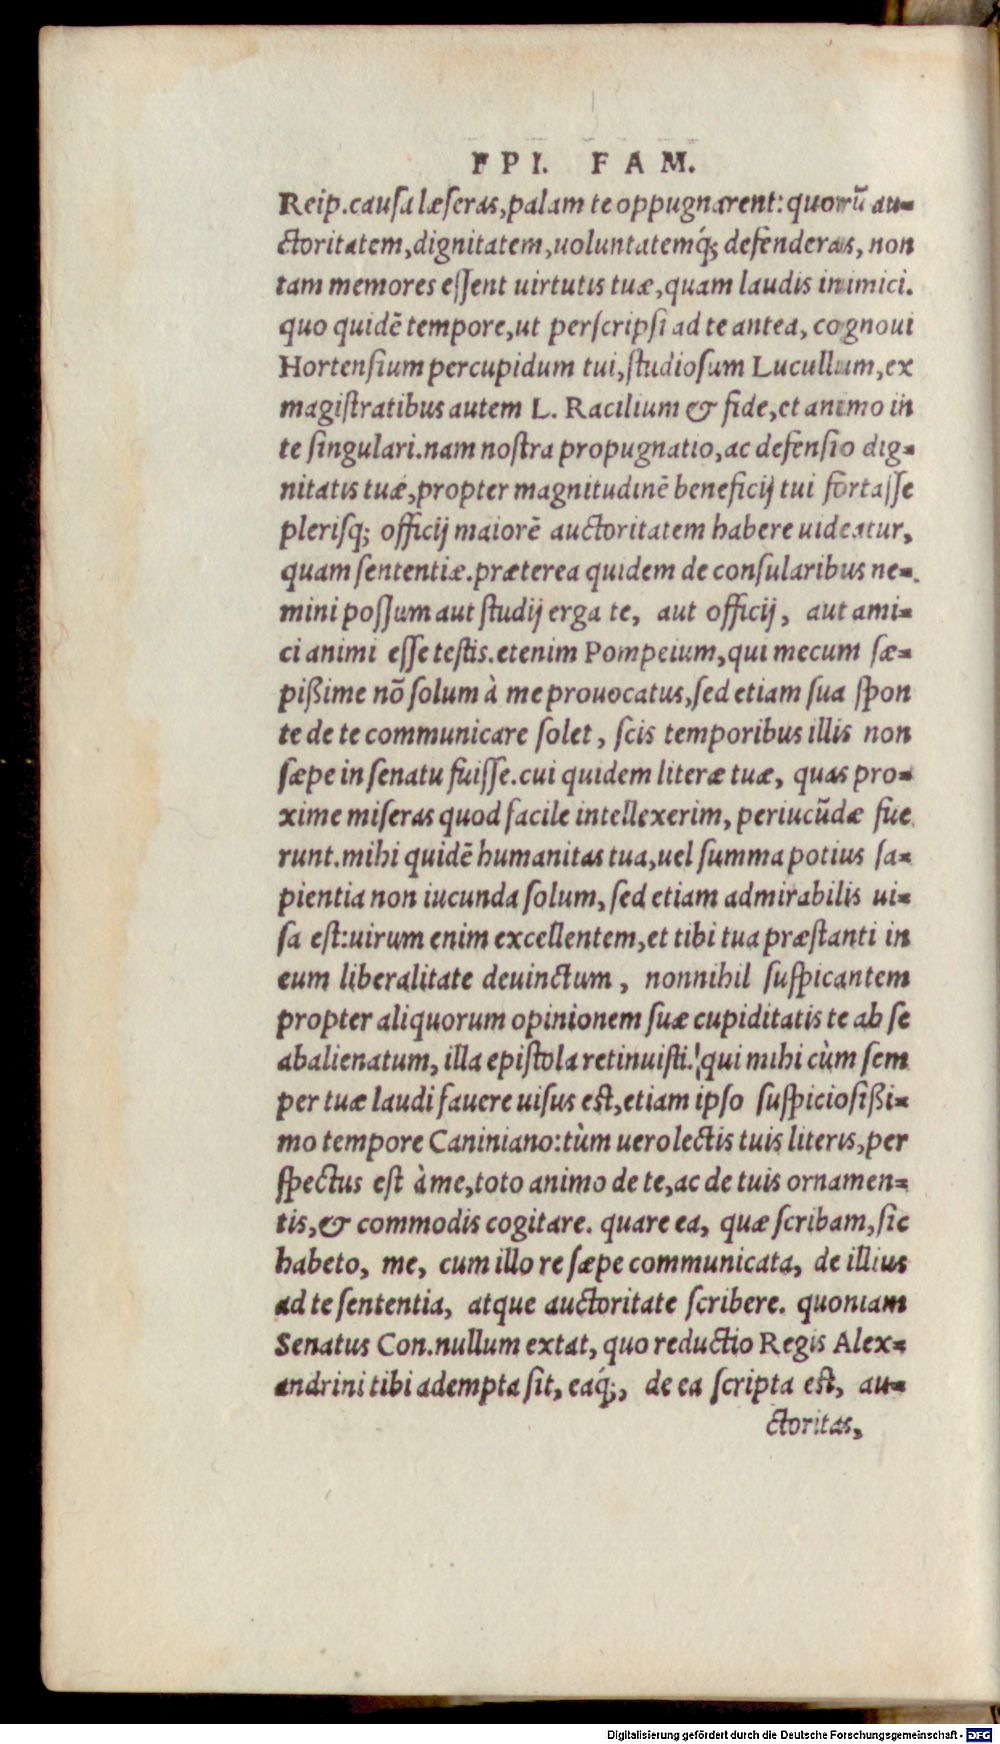 EPI. FAM.
Reip.causa læseras,palam te oppugnarent: quorū au-
ctoritatem,dignitatem,uoluntatemq́; defenderas, non
tam memores essent uirtutis tuæ,quam laudis inimici.
quo quidē tempore,ut perscripsi ad te antea, cognoui
Hortensium percupidum tui,studiosum Lucullum,ex
magistratibus autem L. Racilium & fide,et animo in
te singulari.nam nostra propugnatio,ac defensio dig-
nitatis tuæ,propter magnitudinē beneficij tui fortasse
plerisq; officij maiorē auctoritatem habere uideatur,
quam sententiæ.præterea quidem de consularibus ne-
mini possum aut studij erga te, aut officij, aut ami-
ci animi esse testis.etenim Pompeium,qui mecum sæ-
pißime nō solum à me prouocatus,sed etiam sua spon
te de te communicare solet, scis temporibus illis non
sæpe in senatu fuisse.cui quidem literæ tuæ, quas pro-
xime miseras quod facile intellexerim, periucūdæ fue
runt.mihi quidē humanitas tua,uel summa potius sa-
pientia non iucunda solum, sed etiam admirabilis ui-
sa est:uirum enim excellentem,et tibi tua præstanti in
eum liberalitate deuinctum, nonnihil suspicantem
propter aliquorum opinionem suæ cupiditatis te ab se
abalienatum, illa epistola retinuisti. qui mihi cùm sem
per tuæ laudi fauere uisus est,etiam ipso suspiciosißi-
mo tempore Caniniano:tùm uero lectis tuis literis,per
spectus est à me,toto animo de te,ac de tuis ornamen-
tis,& commodis cogitare. quare ea, quæ scribam,sic
habeto, me, cum illo re sæpe communicata, de illius
ad te sententia, atque auctoritate scribere. quoniam
Senatus Con.nullum extat, quo reductio Regis Alex-
andrini tibi adempta sit, eaq́;, de ea scripta est, au-
ctoritas,
Digitalisierung gefördert durch die Deutsche Forschungsgemeinschaft - DFG